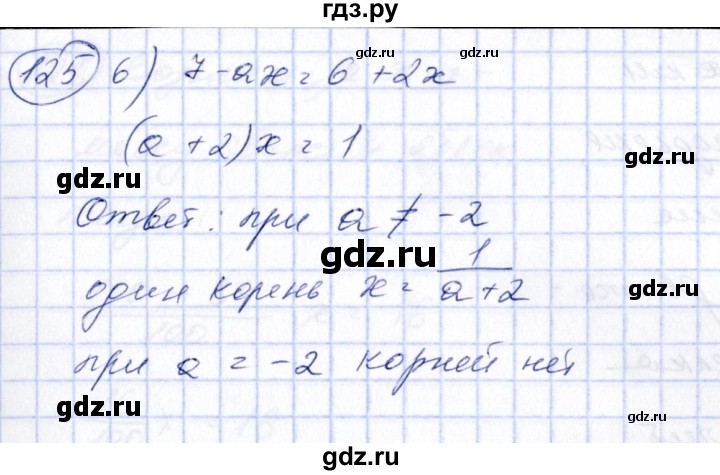 гдз.ру
125 6) 7-ax = 6 +2x
gdz.ru gdz.ru
(a +2)x = 1
gdz.ru gdz.ru
Ответ: при a ≠ -2
gdz.ru
один корень x = 1/(a+2)
gdz.ru gdz.ru
при a = -2 корней нет
gdz.ru gdz.ru